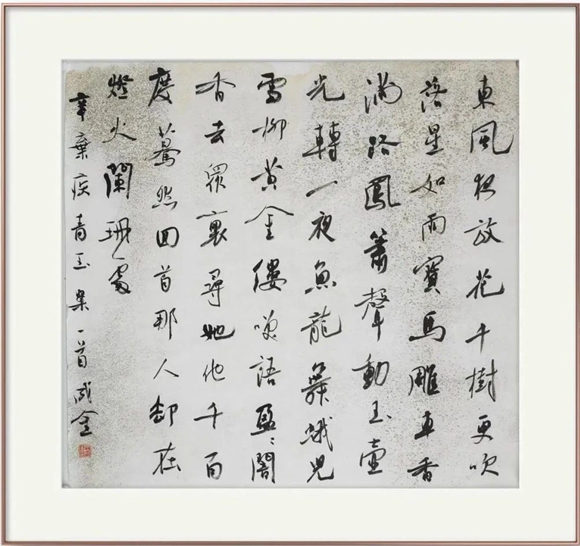 東風夜放花千樹更吹
落星如雨寶馬雕車香
滿路鳳簫聲動玉壺
光轉一夜魚龍舞蛾兒
雪柳黃金縷笑語盈〻闇
香去眾裏尋她他千百
度驀然回首那人卻在
燈火闌珊處
辛棄疾青玉案一首